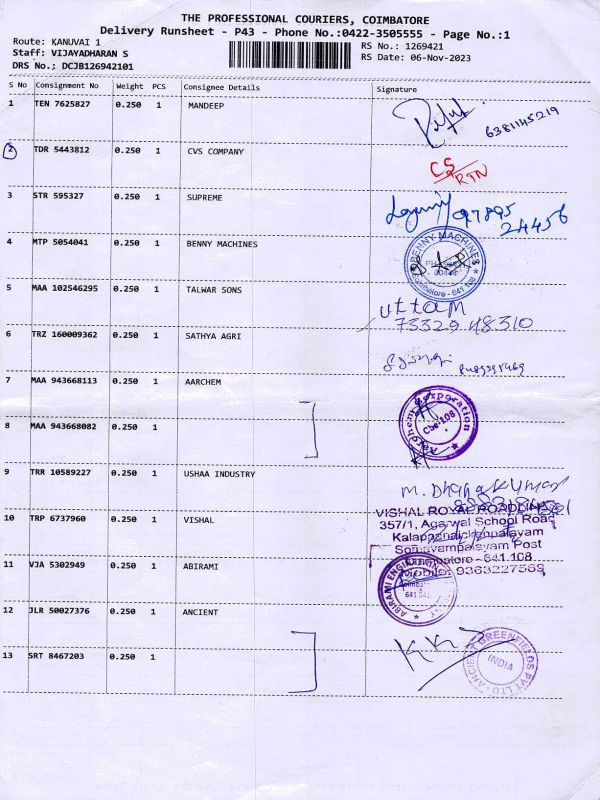 THE PROFESSIONAL COURIERS, COIMBATORE
Delivery Runsheet - P43 - Phone No.:0422-3505555 - Page No.:1
Route: KANUVAI 1
RS No.: 1269421
Staff: VIJAYADHARAN S
RS Date: 06-Nov-2023
DRS No.; DCJB126942101
S No Consignment No Weight PCS Consignee Details Signature
1 TEN 7625827 0.250 1 MANDEEP
6381145219
2 TDR 5443812 0.250 1 CVS COMPANY
CS/RTN
3 STR 595327 0.250 1 SUPREME
97895
24456
4 MTP 5054041 0.250 1 BENNY MACHINES
BENNY MACHINES
Coimbatore - 641 108
5 MAA 102546295 0.250 1 TALWAR SONS
uttam
73329 48310
6 TRZ 160009362 0.250 1 SATHYA AGRI
7 MAA 943668113 0.250 1 AARCHEM
Corporation
Cbe-108
8 MAA 943668082 0.250 1
9 TRR 10589227 0.250 1 USHAA INDUSTRY
M. Dhanakumar
10 TRP 6737960 0.250 1 VISHAL
VISHAL ROYAL ROADLINES
357/1, Agarwal School Road
Kalappanaickenpalayam
Somayampalayam Post
Coimbatore - 641 108
9363227569
11 VJA 5302949 0.250 1 ABIRAMI
ABIRAMI ENGINEERING
12 JLR 50027376 0.250 1 ANCIENT
ANCIENT GREENFIELDS PVT LTD
INDIA
13 SRT 8467203 0.250 1